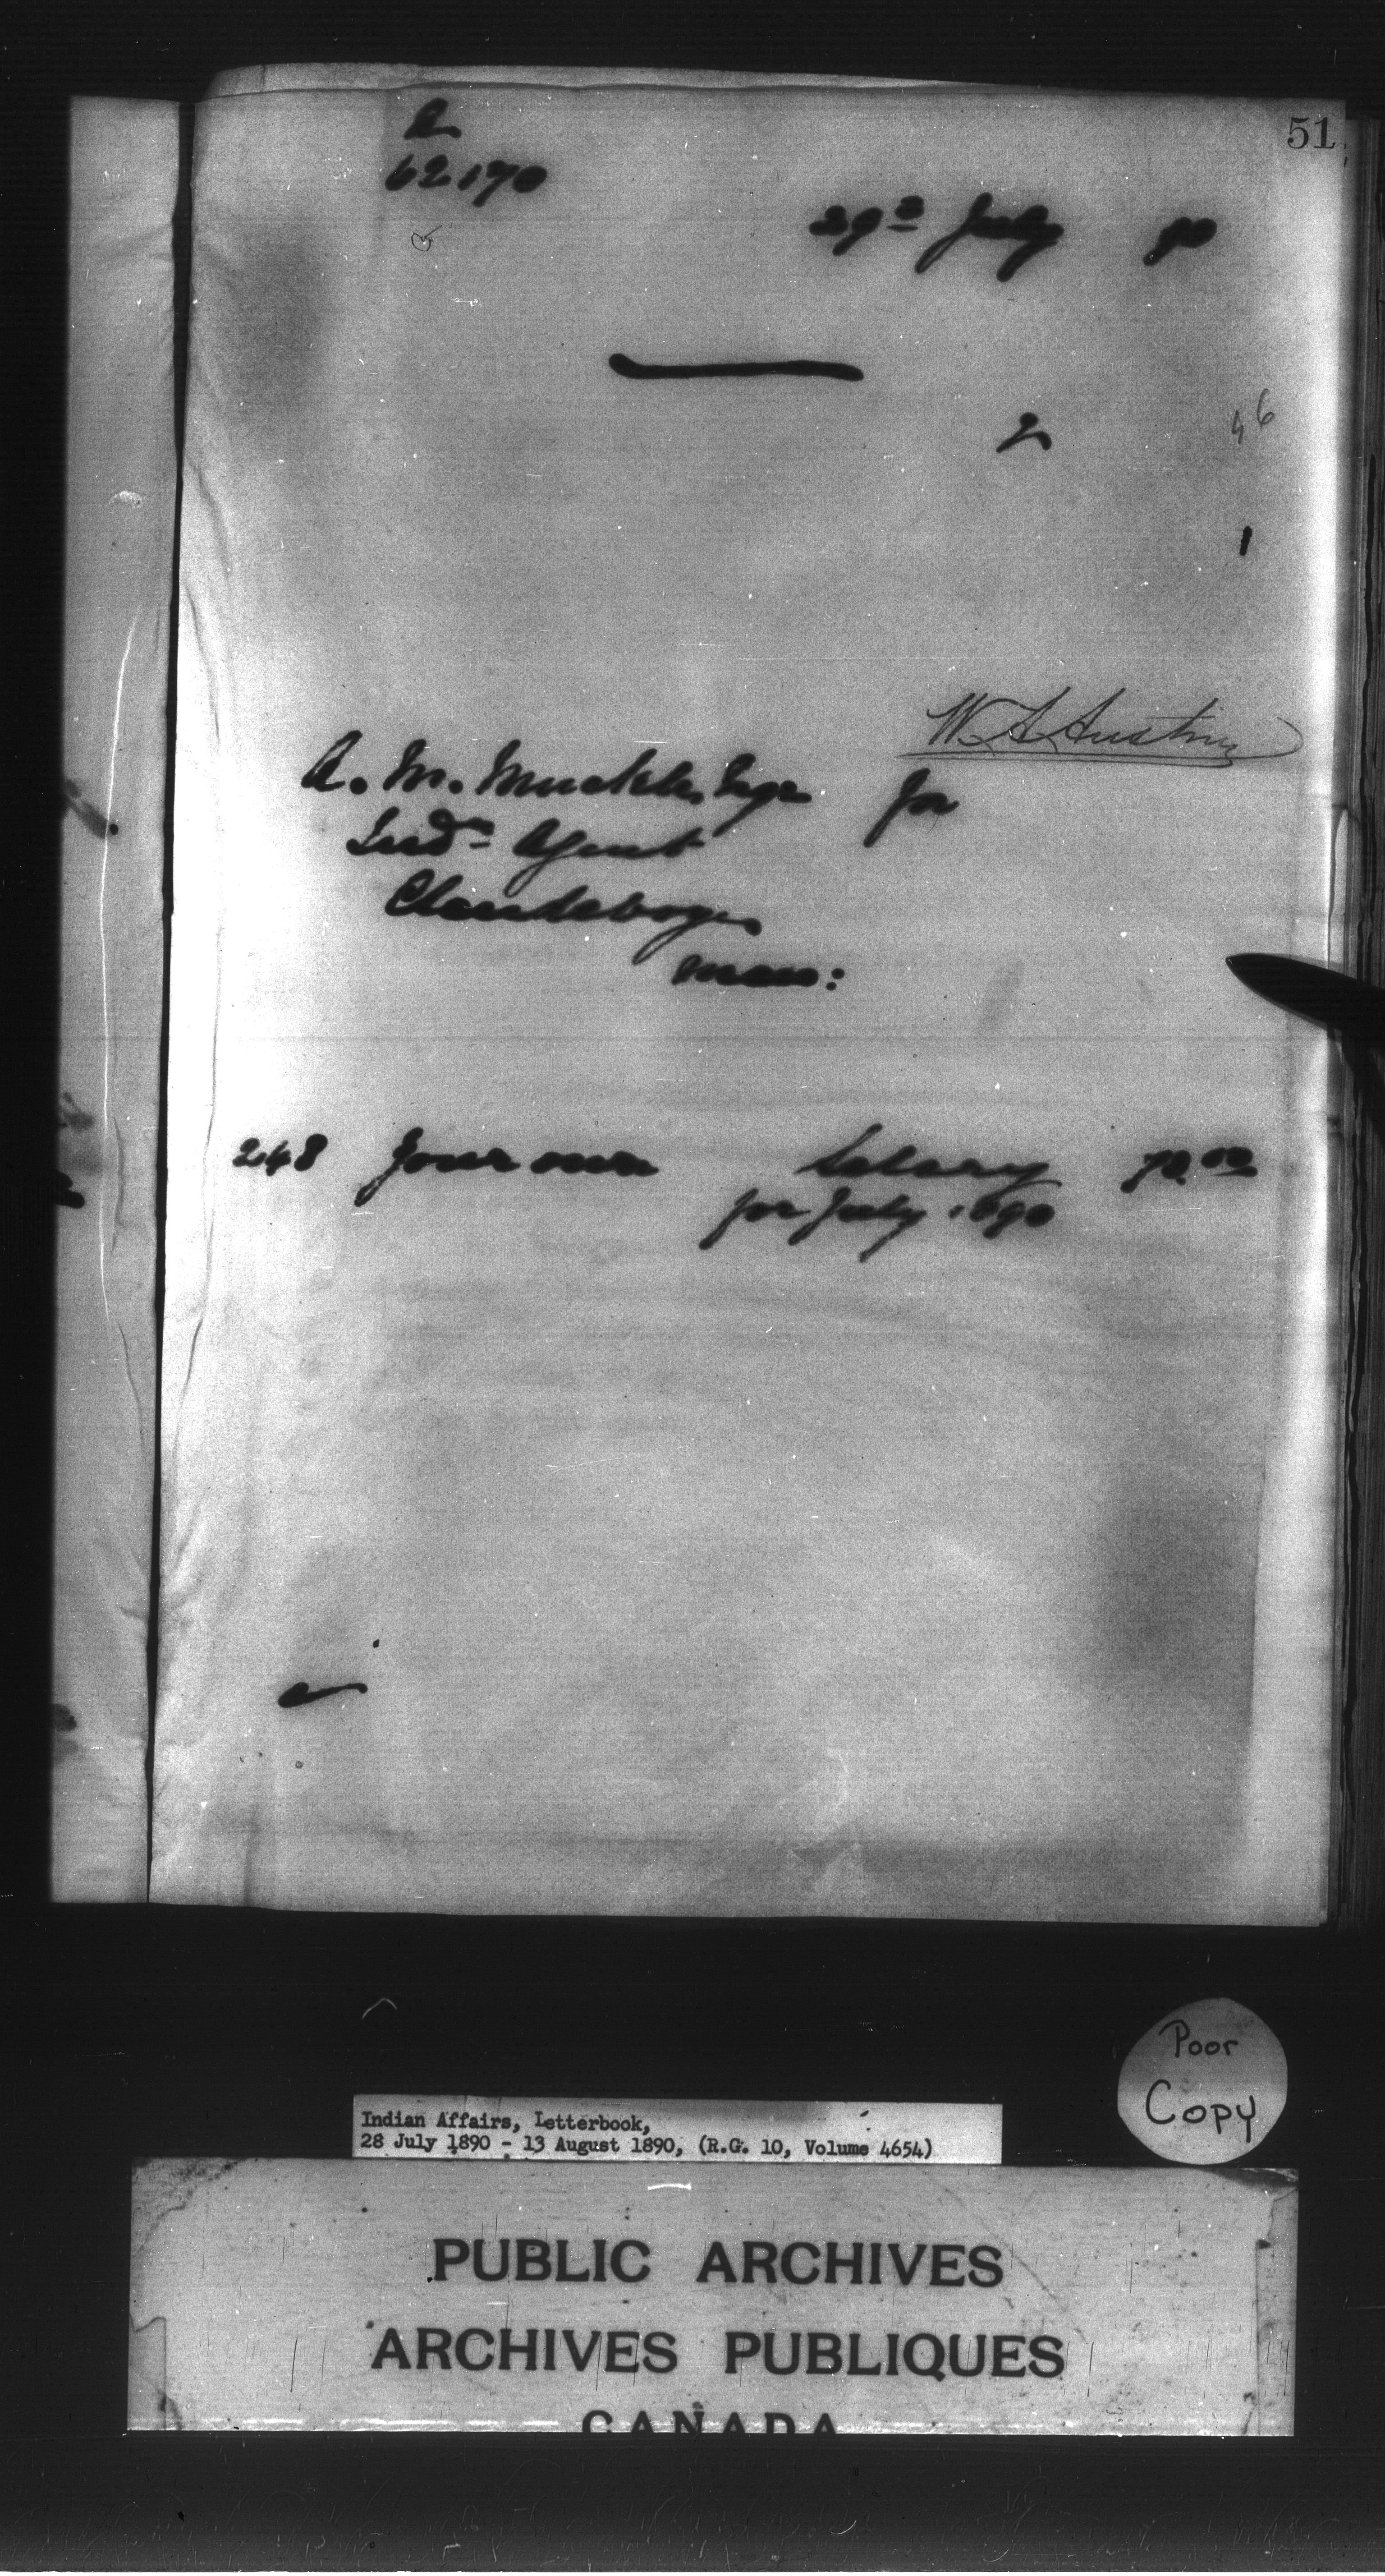 51
A
62170
29th July 90
2
46
1
W. A. Austin
A. M. Muckle, Esqr for
Indn Agent
Clandeboye
Man:
248 Your own Salary 70.00
for July 1890
Poor
Copy
Indian Affairs, Letterbook,
28 July 1890 - 13 August 1890, (R.G. 10, Volume 4654)
PUBLIC ARCHIVES
ARCHIVES PUBLIQUES
CANADA